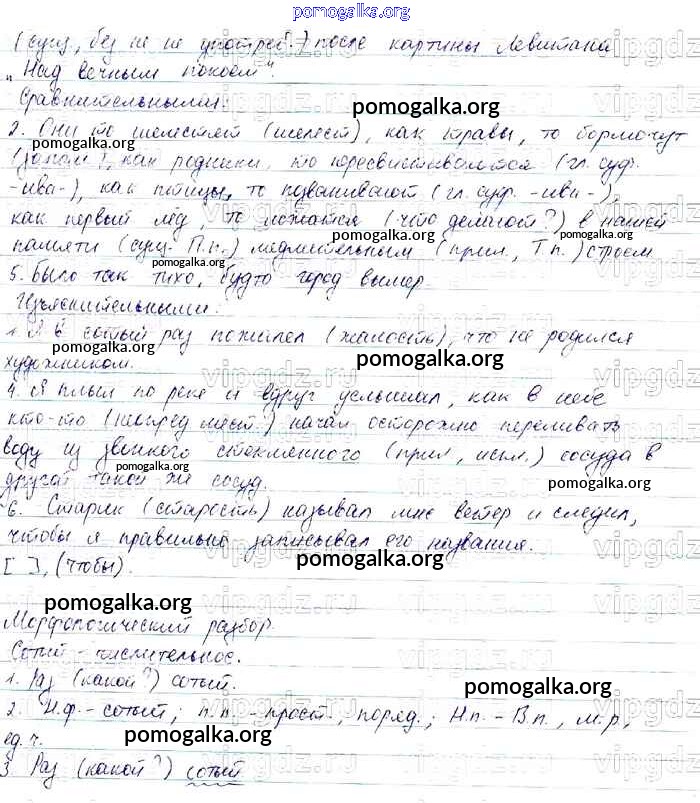 pomogalka.org
(сущ, без не не употреб.) после картины Левитана
„Над вечным покоем".
Сравнительными:
pomogalka.org
2. Они то шелестят (шелест), как травы, то бормочут
pomogalka.org
как родники, то пересвистываются (гл. суф.
-ива-), как птицы, то позванивают (гл. суф. -ива-),
pomogalka.org
как первый лёд, то ложатся (что делают?) в нашей
pomogalka.org
памяти (сущ. П.п.) медлительным (прил., Т.п.) строем
pomogalka.org
5. Было так тихо, будто город вымер.
Изъяснительными:
1. Я в сотый раз пожалел (жалость), что не родился
pomogalka.org
художником.
pomogalka.org
4. Я плыл по реке и вдруг услышал, как в небе
кто-то (неопред мест.) начал осторожно переливать
pomogalka.org
воду из звонкого стеклянного (прил, искл.) сосуда в
pomogalka.org
другой такой же сосуд.
pomogalka.org
6. Старик (старость) называл мне ветер и следил,
чтобы я правильно записывал его названия.
[ ], (чтобы).
pomogalka.org
pomogalka.org
Морфологический разбор.
Сотый - числительное.
1. Раз (какой?) сотый.
pomogalka.org
2. Н.ф. - сотый; п.п. - прост., поряд.; Н.п. - В.п., м.р,
pomogalka.org
ед. ч.
pomogalka.org
3. Раз (какой?) сотый
vipgdz.ru